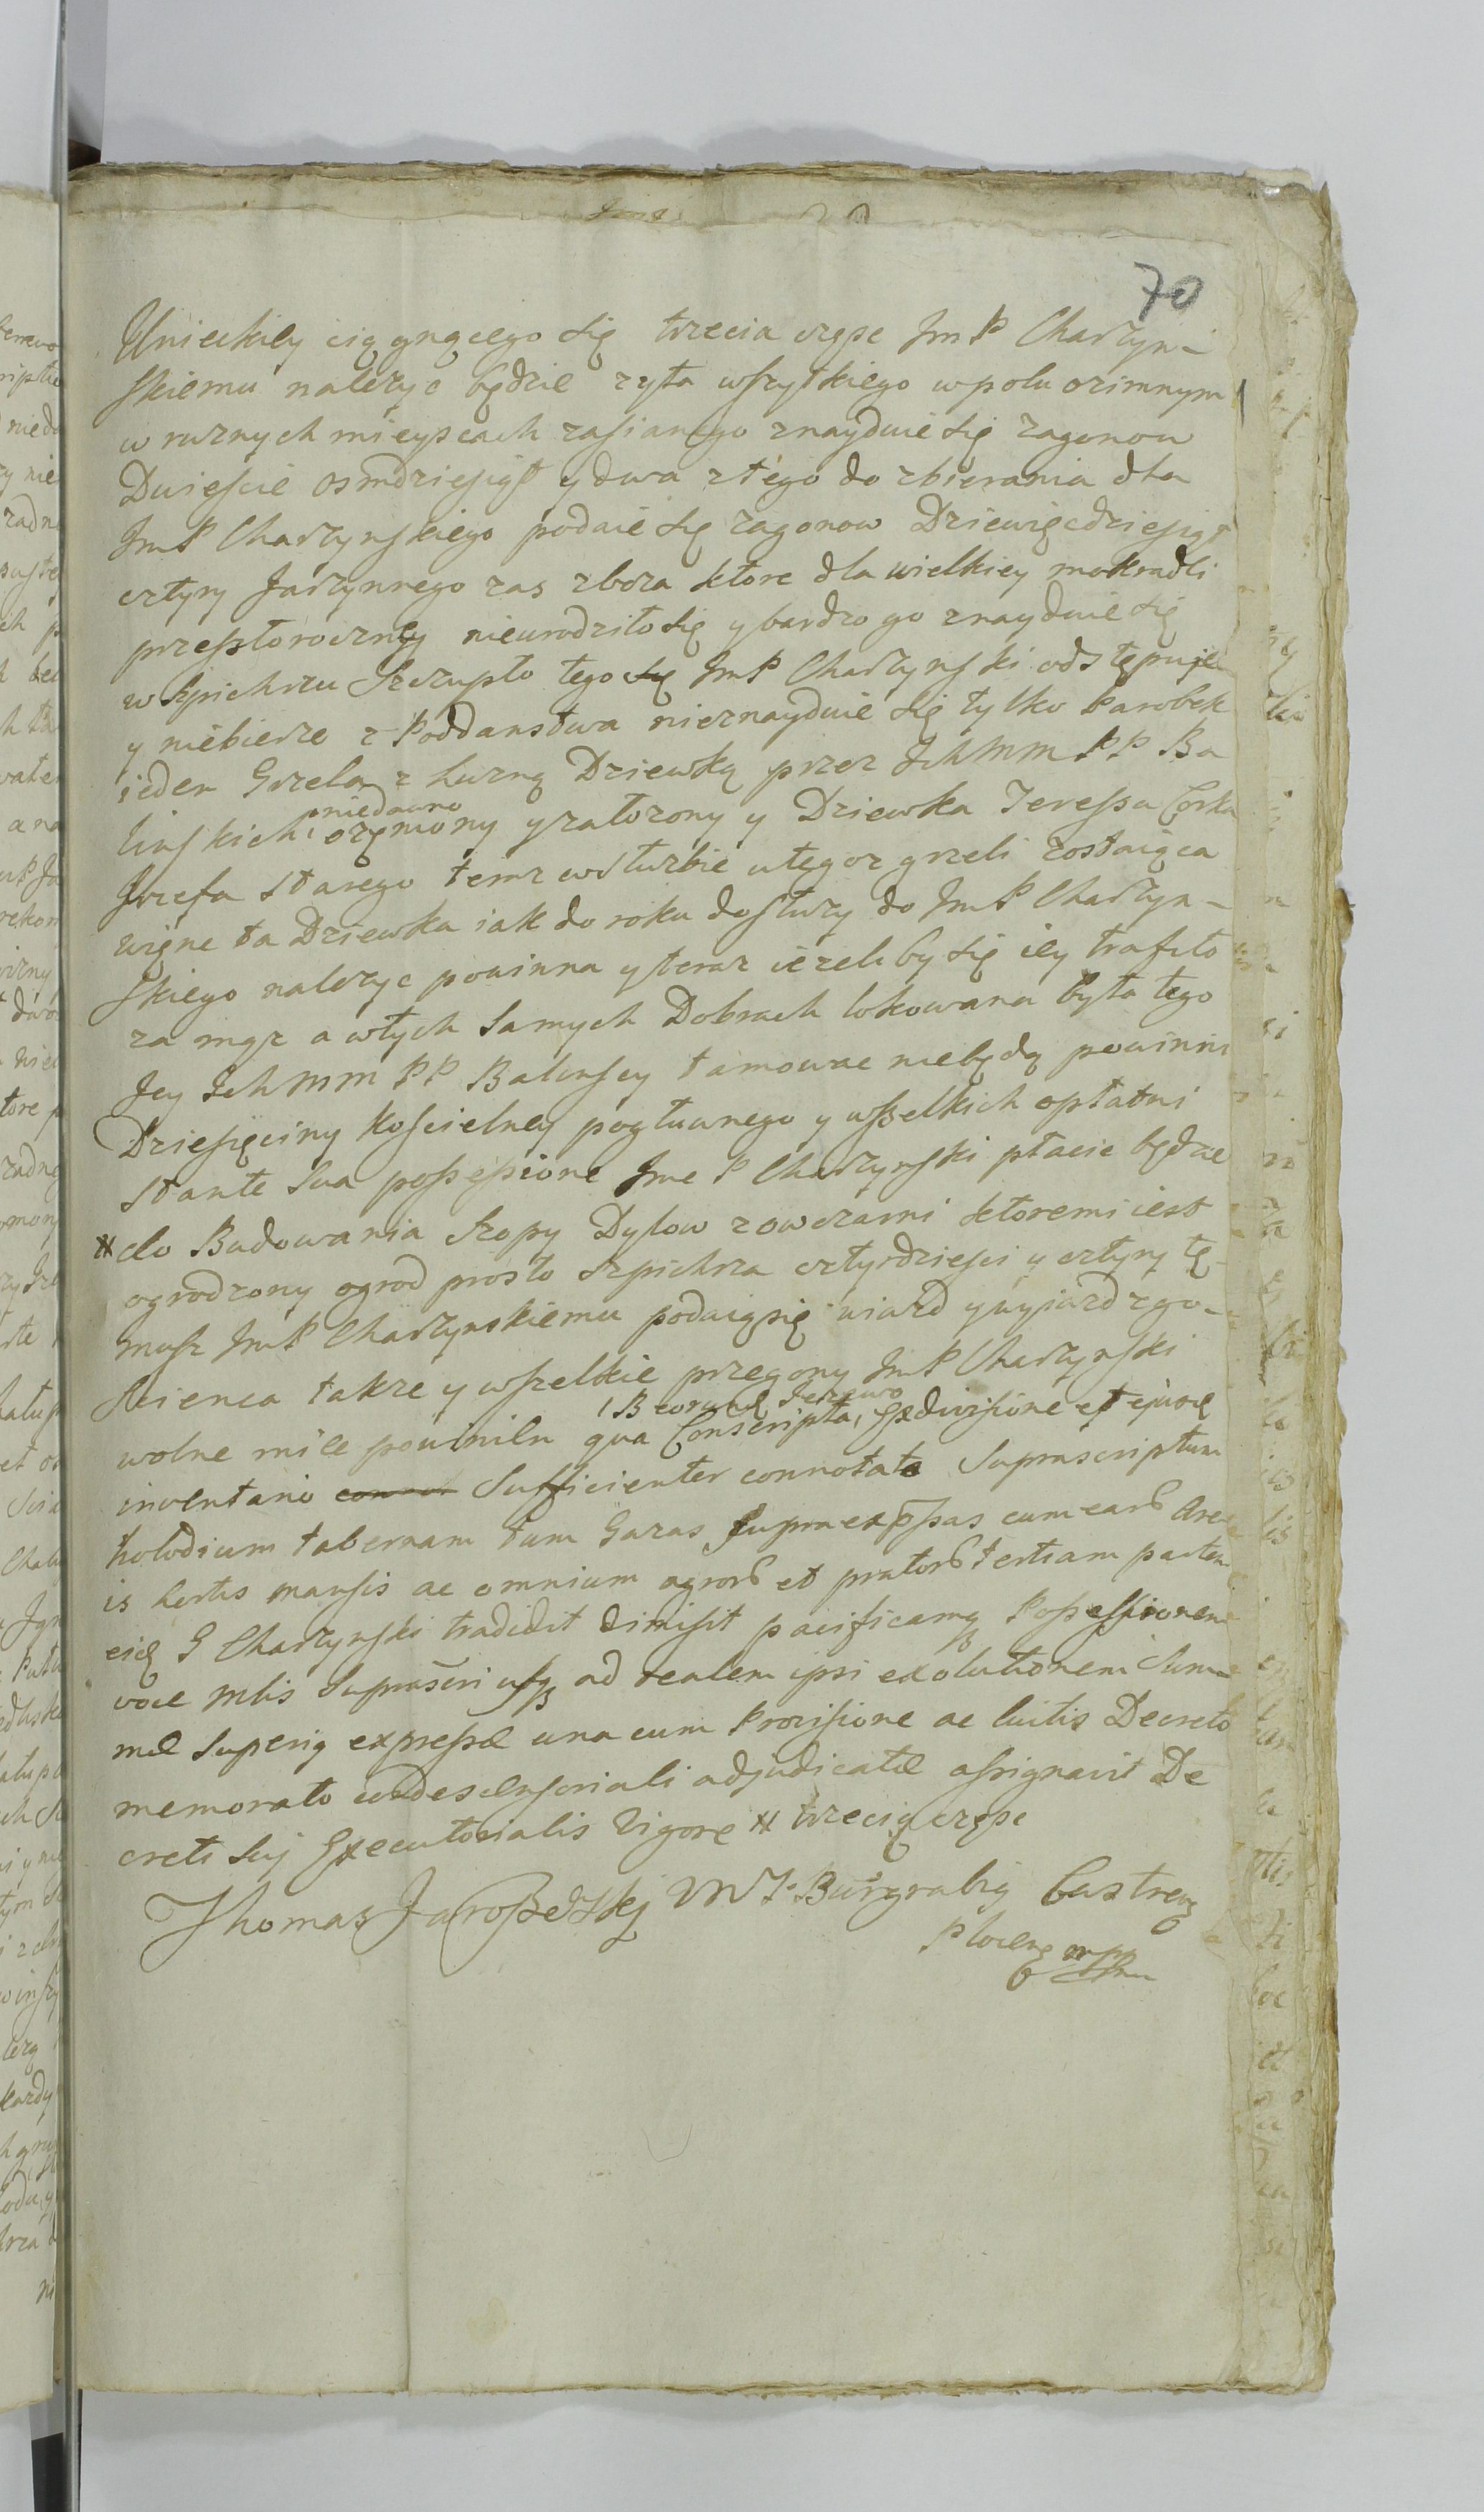 70
Unieckiey ciągnącego się trzecia częsc Jm P Charzyn-
skiemu nalezyc będzie zyta wszytkiego w polu ozimnym
w ruznych mieyscach zasianego znayduie się zagonow
Dwiescie osmdziesiąt y dwa z tego do zbierania dla
Jm P Charzynskiego podaie się zagonow Dziewięcdziesiąt
cztyry Jarzynnego zas zboza ktore dla wielkiey mokradli
przeszłoroczney nieurodziło się y bardzo go znayduie się
w Spichrzu Szczupło tego się Jm P Charzynski odstępuje
y niebierze z Poddanstwa nieznayduie się tylko Parobek
ieden Grzela z Luzną Dziewką przez Ich MM PP Ba
linskich niedawno ozęmony y załozony y Dziewka Teressa Corka
Jozefa Starego temz w słuzbie u tegoz grzeli zostaiąca
więnc ta Dziewka iak do roku dosłuzy do Jm P Charzyn-
skiego nalezyc powinna y teraz iezeli by się iey trafiło
za mąz a w tych Samych Dobrach lokowana była tego
Jey Ich MM PP Balinscy tamowac niebędą powinni
Dziesięciny koscielney pogłownego y wszelkich opłat ni
stante Sua possessione Jmc P Charzynski płacic będzie
# do Budowania Szopy Dylow z owczarni ktoremi iest
ogrodzony ogrod prosto Szpichrza cztyrdziesci y cztyry tę-
musz Jm P Charzynskiemu podaią się wiazd y wyiazd z go-
scienca takze y wszelkie przegony Jm P Charzynski
wolne miec powinien qua Conscripta, Ex divisione et ejusd
inventario Sufficienter connotata Suprascriptum
holodium tabernam tum Gazas Supra expssas cum earb Are-
is hortis mansis ac omnium agrorb et pratorb tertiam partem
eid G Charzynski tradidit dimisit pacificamq Possessionem
voce mtis Suprascri usq ad realem ipsi exolutionem Sum-
mæ Superiq expressæ una cum Provisione ac luitis Decreto
memorato condescensoriali adjudicatæ assignavit De
creti Sui Executorialis Vigore # trzecią częsc
Thomas Burgrabiq Castren
Plocenq mpp